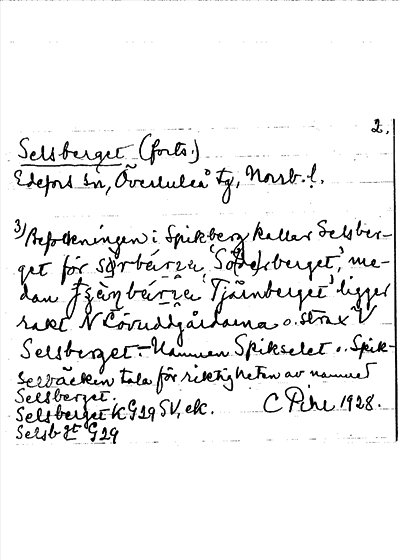 2.
Selsberget (forts.)
Edefors sn, Överluleå tg, Norrb. l.
3) Befolkningen i Spikberg kallar Selsber-
get för 'Söderberget', me-
dan 'Tjärnberget' ligger
rakt N Övuddgårdarna o. strax V
Selsberget. - Namnen Spikselet o. Spik-
selbäcken tala för riktigheten av namnet
Selsberget.
Selsberget K G29 SV, ek. C Pihl 1928.
Selsbgt G29